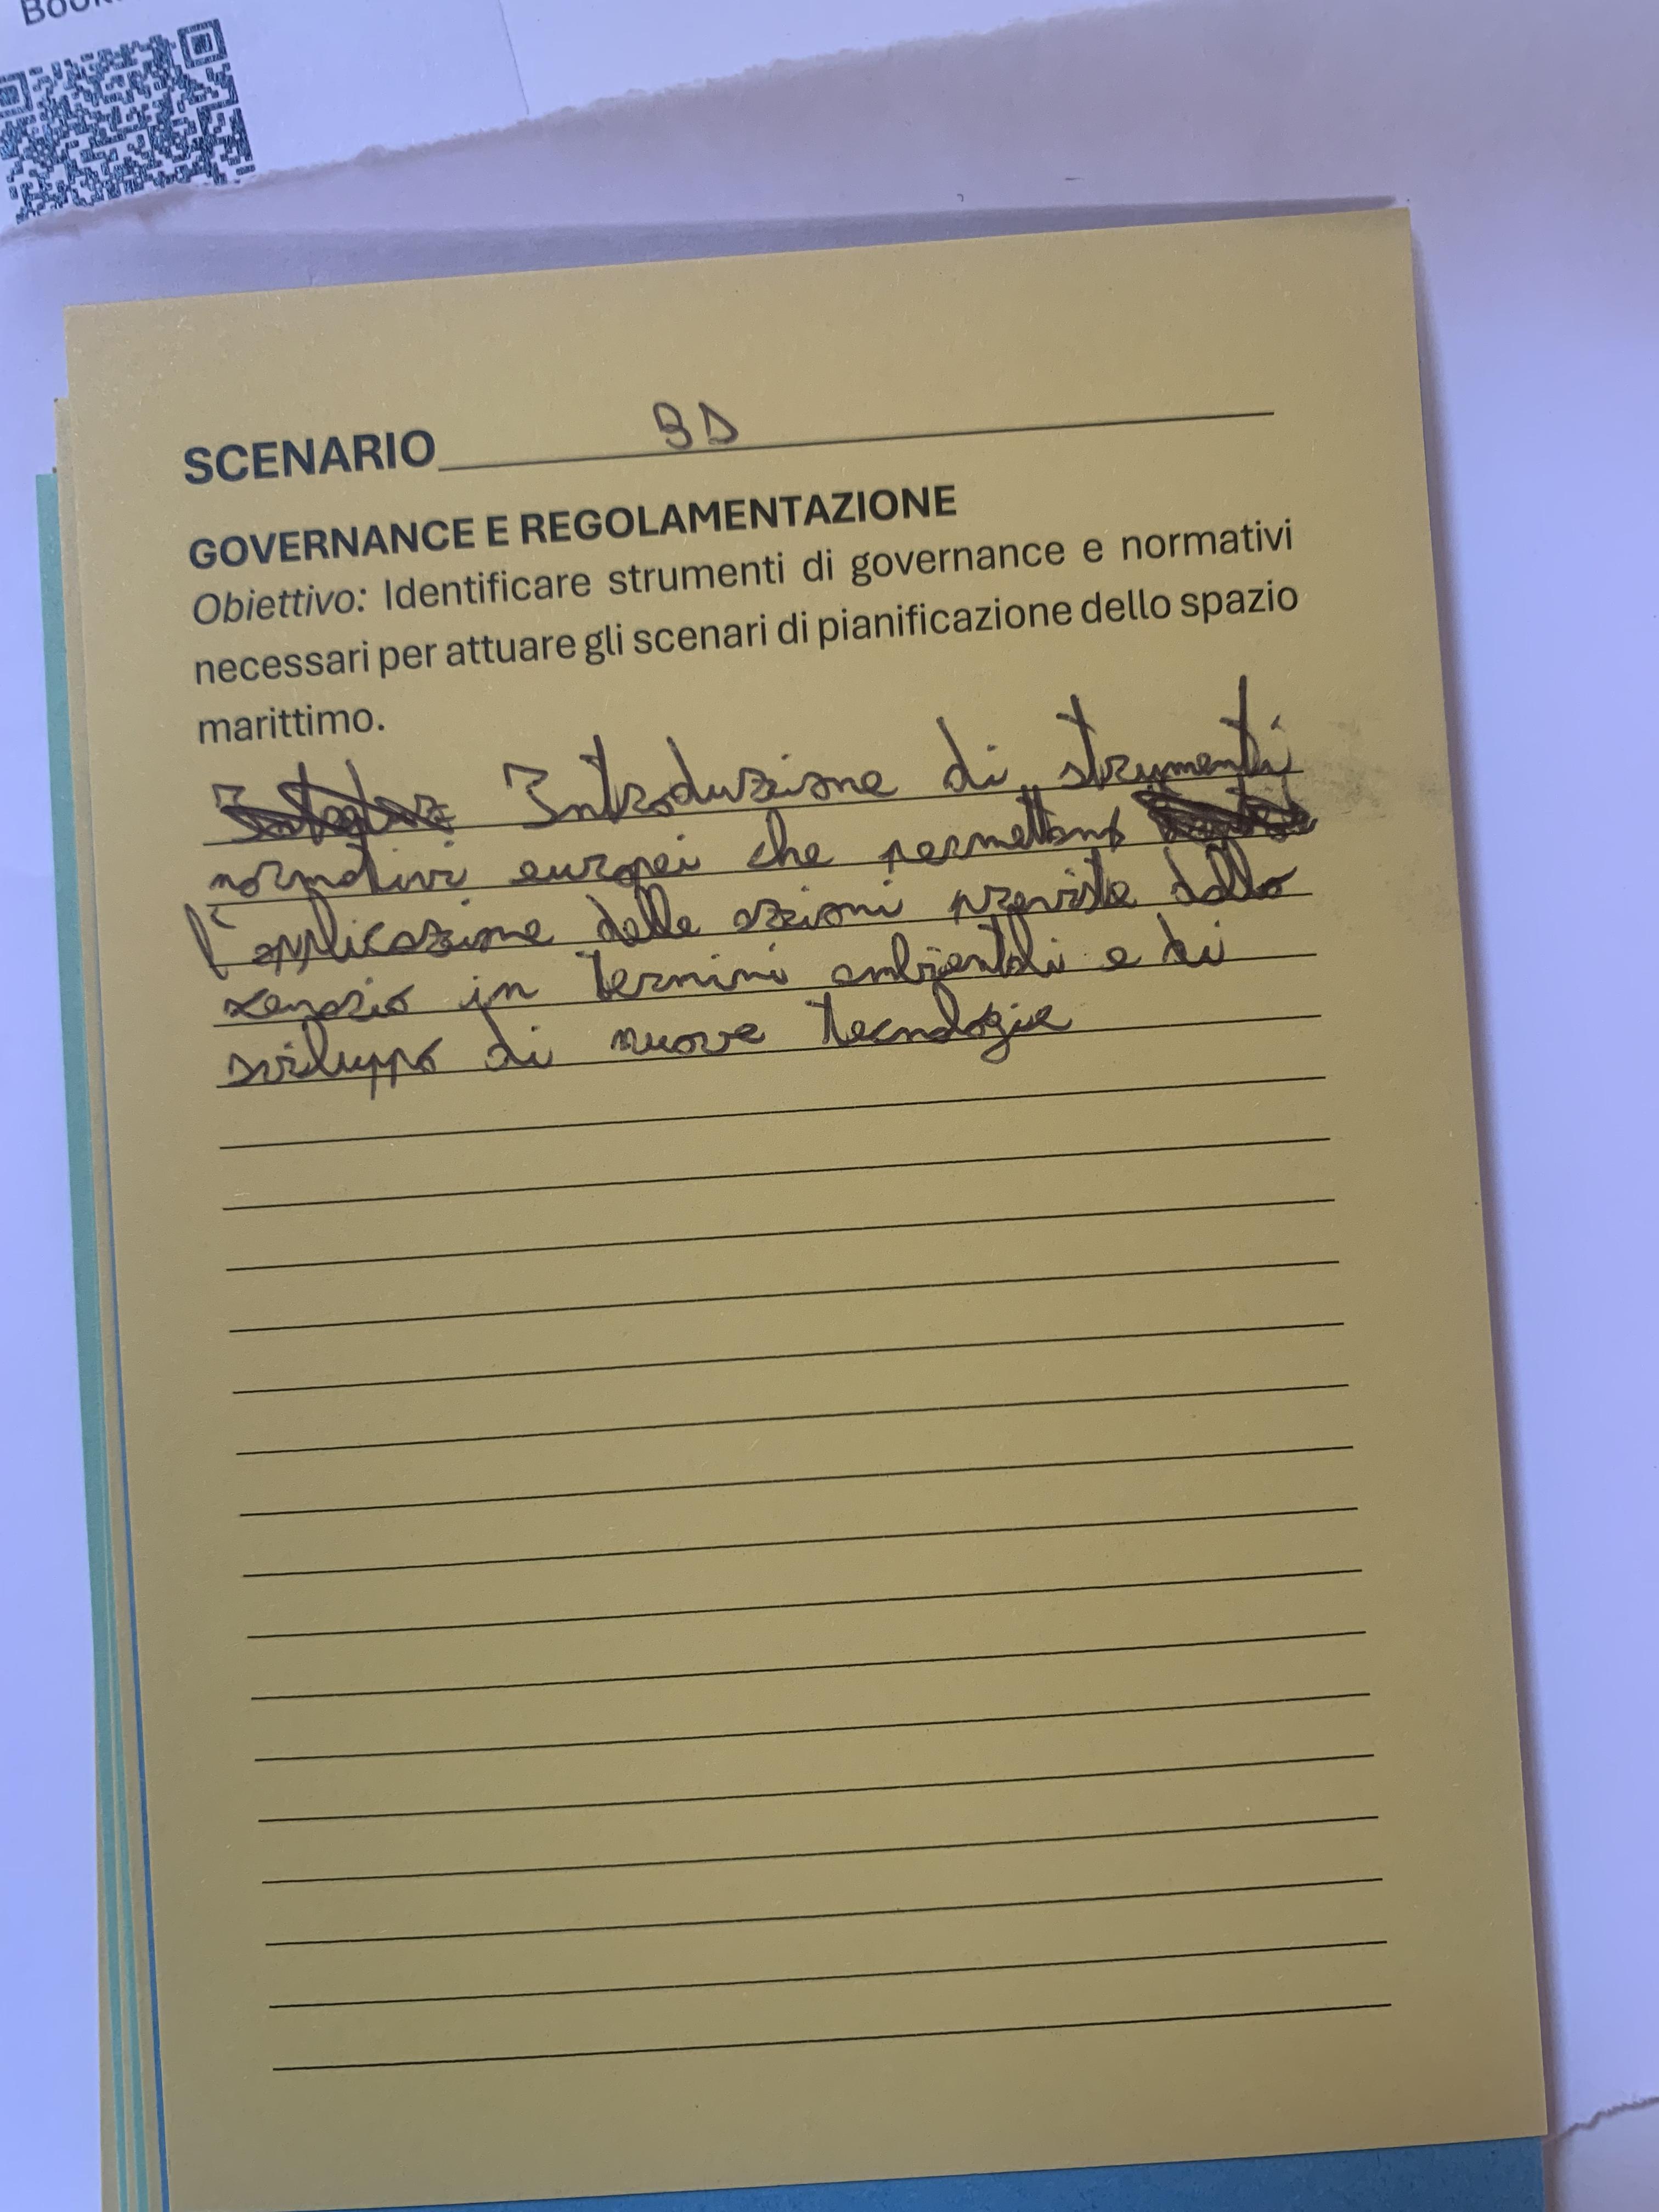 SCENARIO BD
GOVERNANCE E REGOLAMENTAZIONE
Obiettivo: Identificare strumenti di governance e normativi
necessari per attuare gli scenari di pianificazione dello spazio
marittimo.
Introduzione di strumenti
normativi europei che permettano
l'applicazione delle azioni previste dallo
scenario in termini ambientali e di
sviluppo di nuove tecnologie